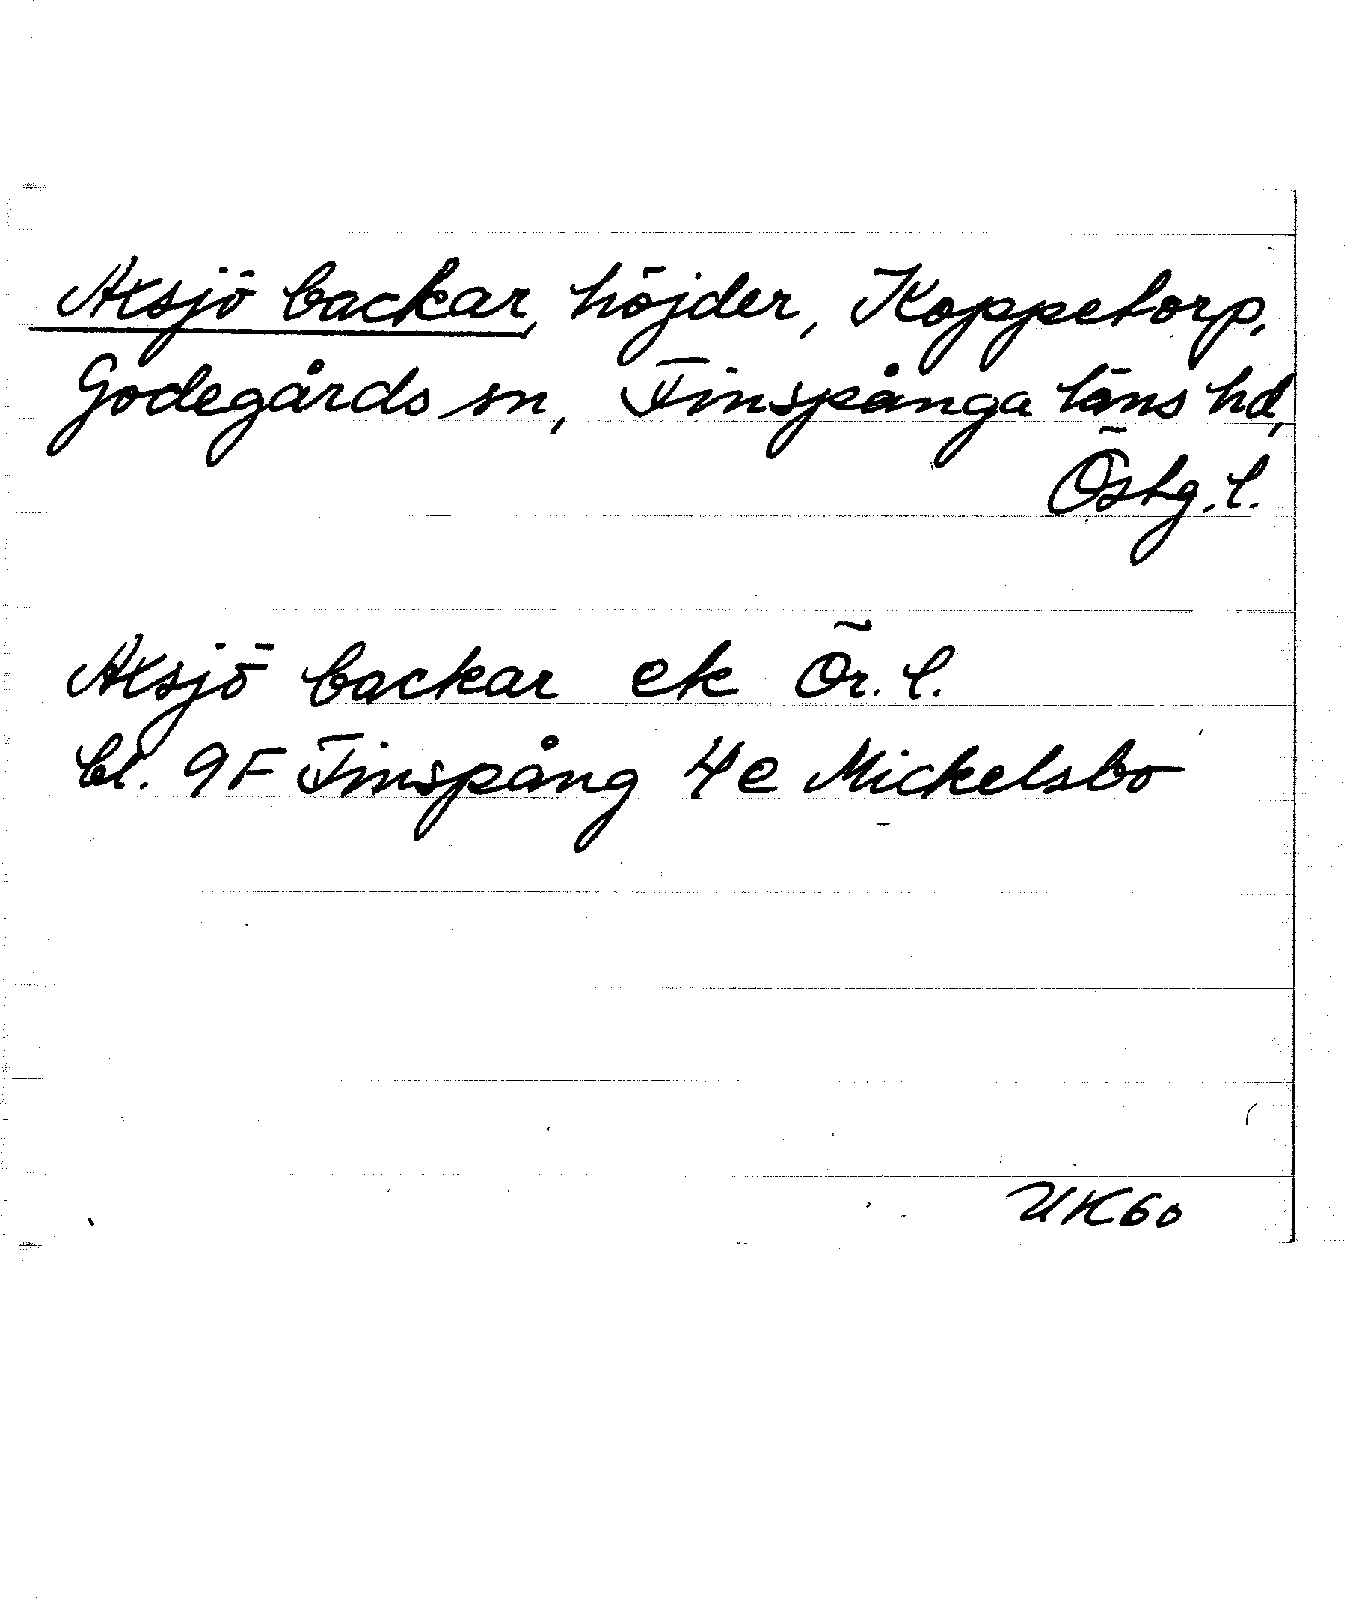 Axsjö backar, höjder, Koppetorp,
Godegårds sn, Finspånga läns hd,
Östg. l.
Axsjö backar ek Ör. l.
bl. 9F Finspång 4e Mickelsbo
UK60